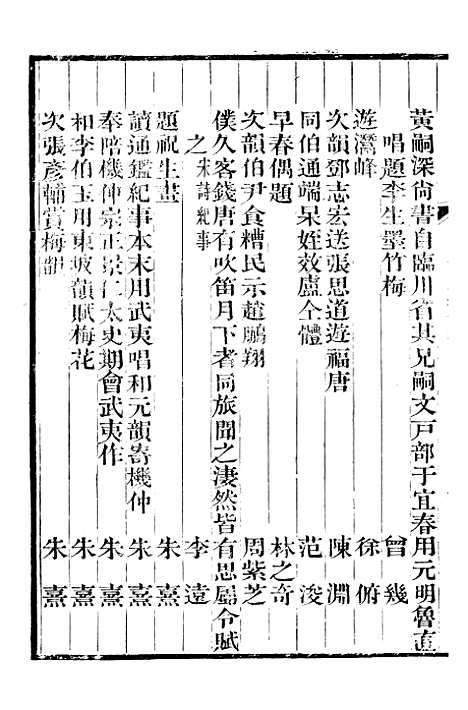 黃嗣深尙書自臨川省其兄嗣文戸部于宜春用元明魯直
唱題李生墨竹梅 曾幾
遊灊峰 徐俯
次韻鄧志宏送張思道遊福唐 陳淵
同伯通端杲姪效盧仝體 范浚
早春偶題 林之奇
次韻伯尹食糟民示趙鵬翔 周紫芝
僕久客錢唐有吹笛月下者同旅聞之淒然皆有思屬令賦
之 宋詩紀事 李遠
題祝生畫 朱熹
讀通鑑紀事本末用武夷唱和元韻寄機仲 朱熹
奉陪機仲宗正景仁太史期會武夷作 朱熹
和李伯玉用東坡韻賦梅花 朱熹
次張彥輔賞梅韻 朱熹